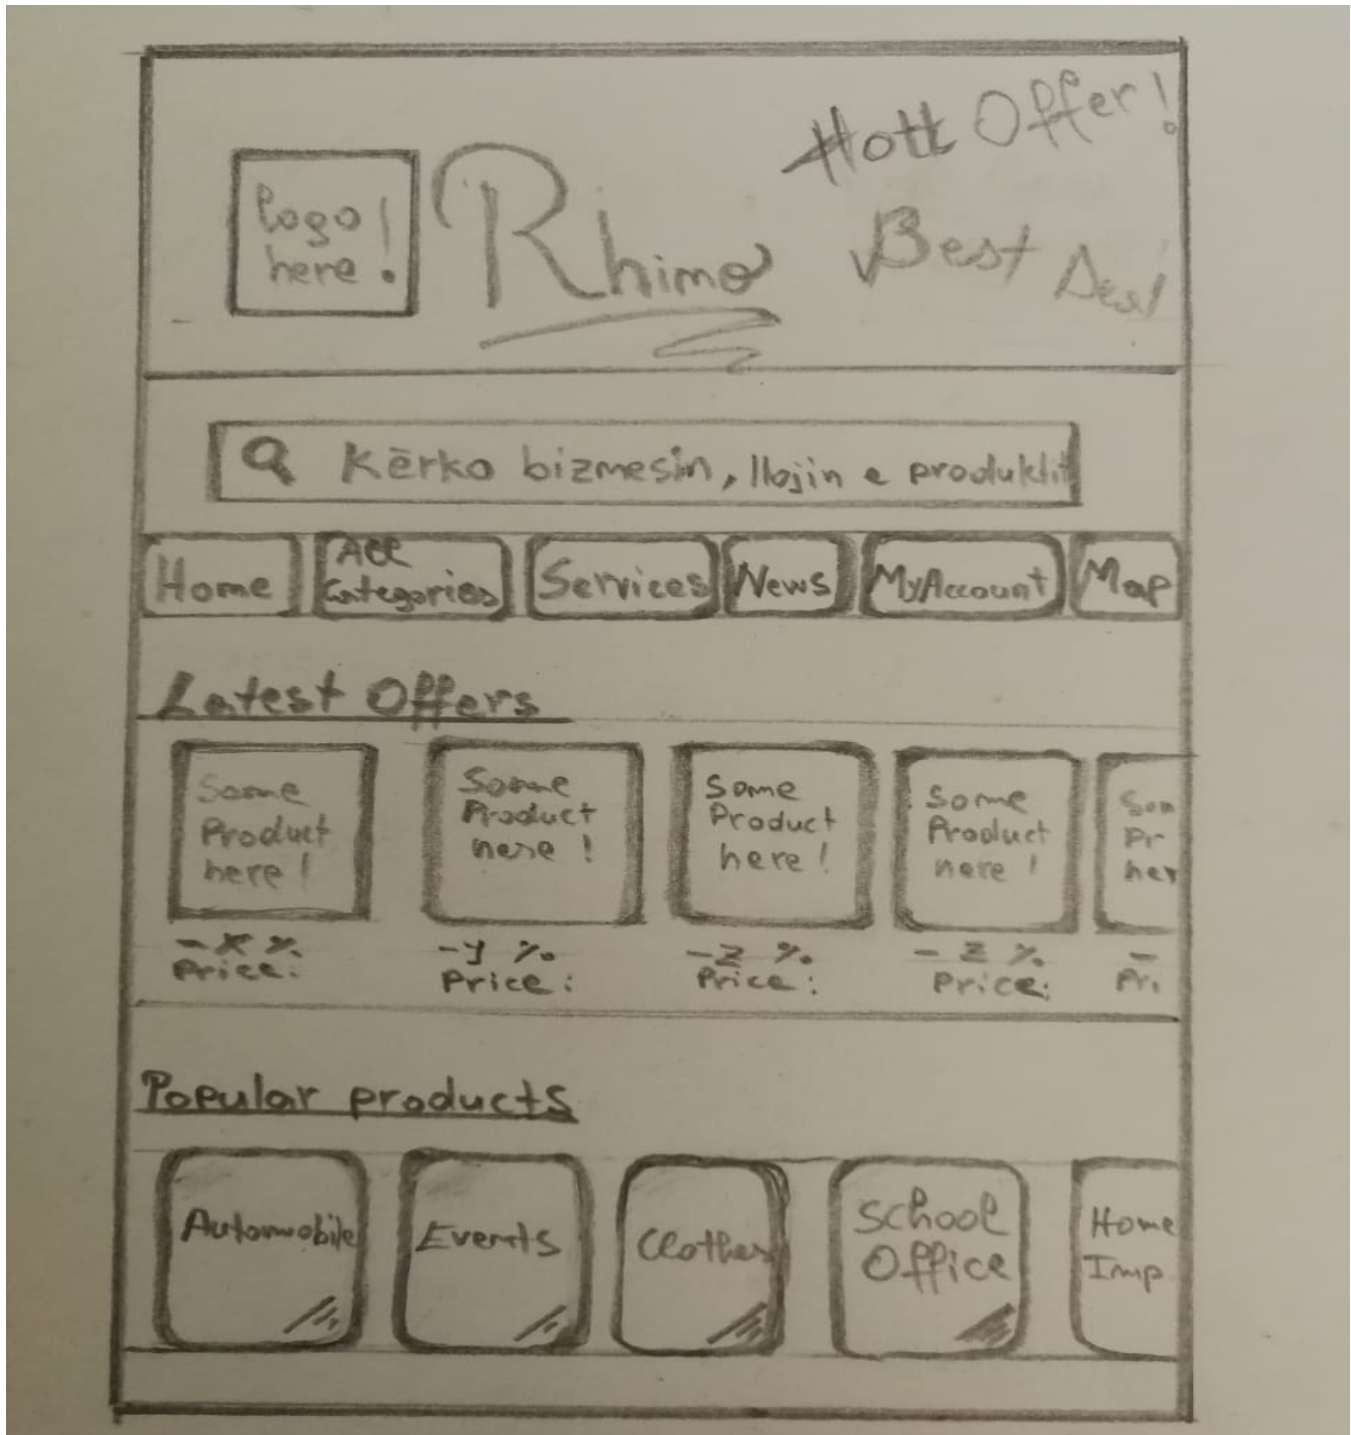 logo
here !
Rhimo
Hott Offer!
Best Deal
Kërko biznesin, llojin e produktit
Home
All
Categories
Services
News
MyAccount
Map
Latest Offers
Some
Product
here !
Some
Product
here !
Some
Product
here !
Some
Product
here !
Som
Pr
her
- X %
Price:
-y %
Price:
-Z %
Price:
- Z %
Price:
-
Pri
Popular products
Automobile
Events
Clothes
School
Office
Home
Imp